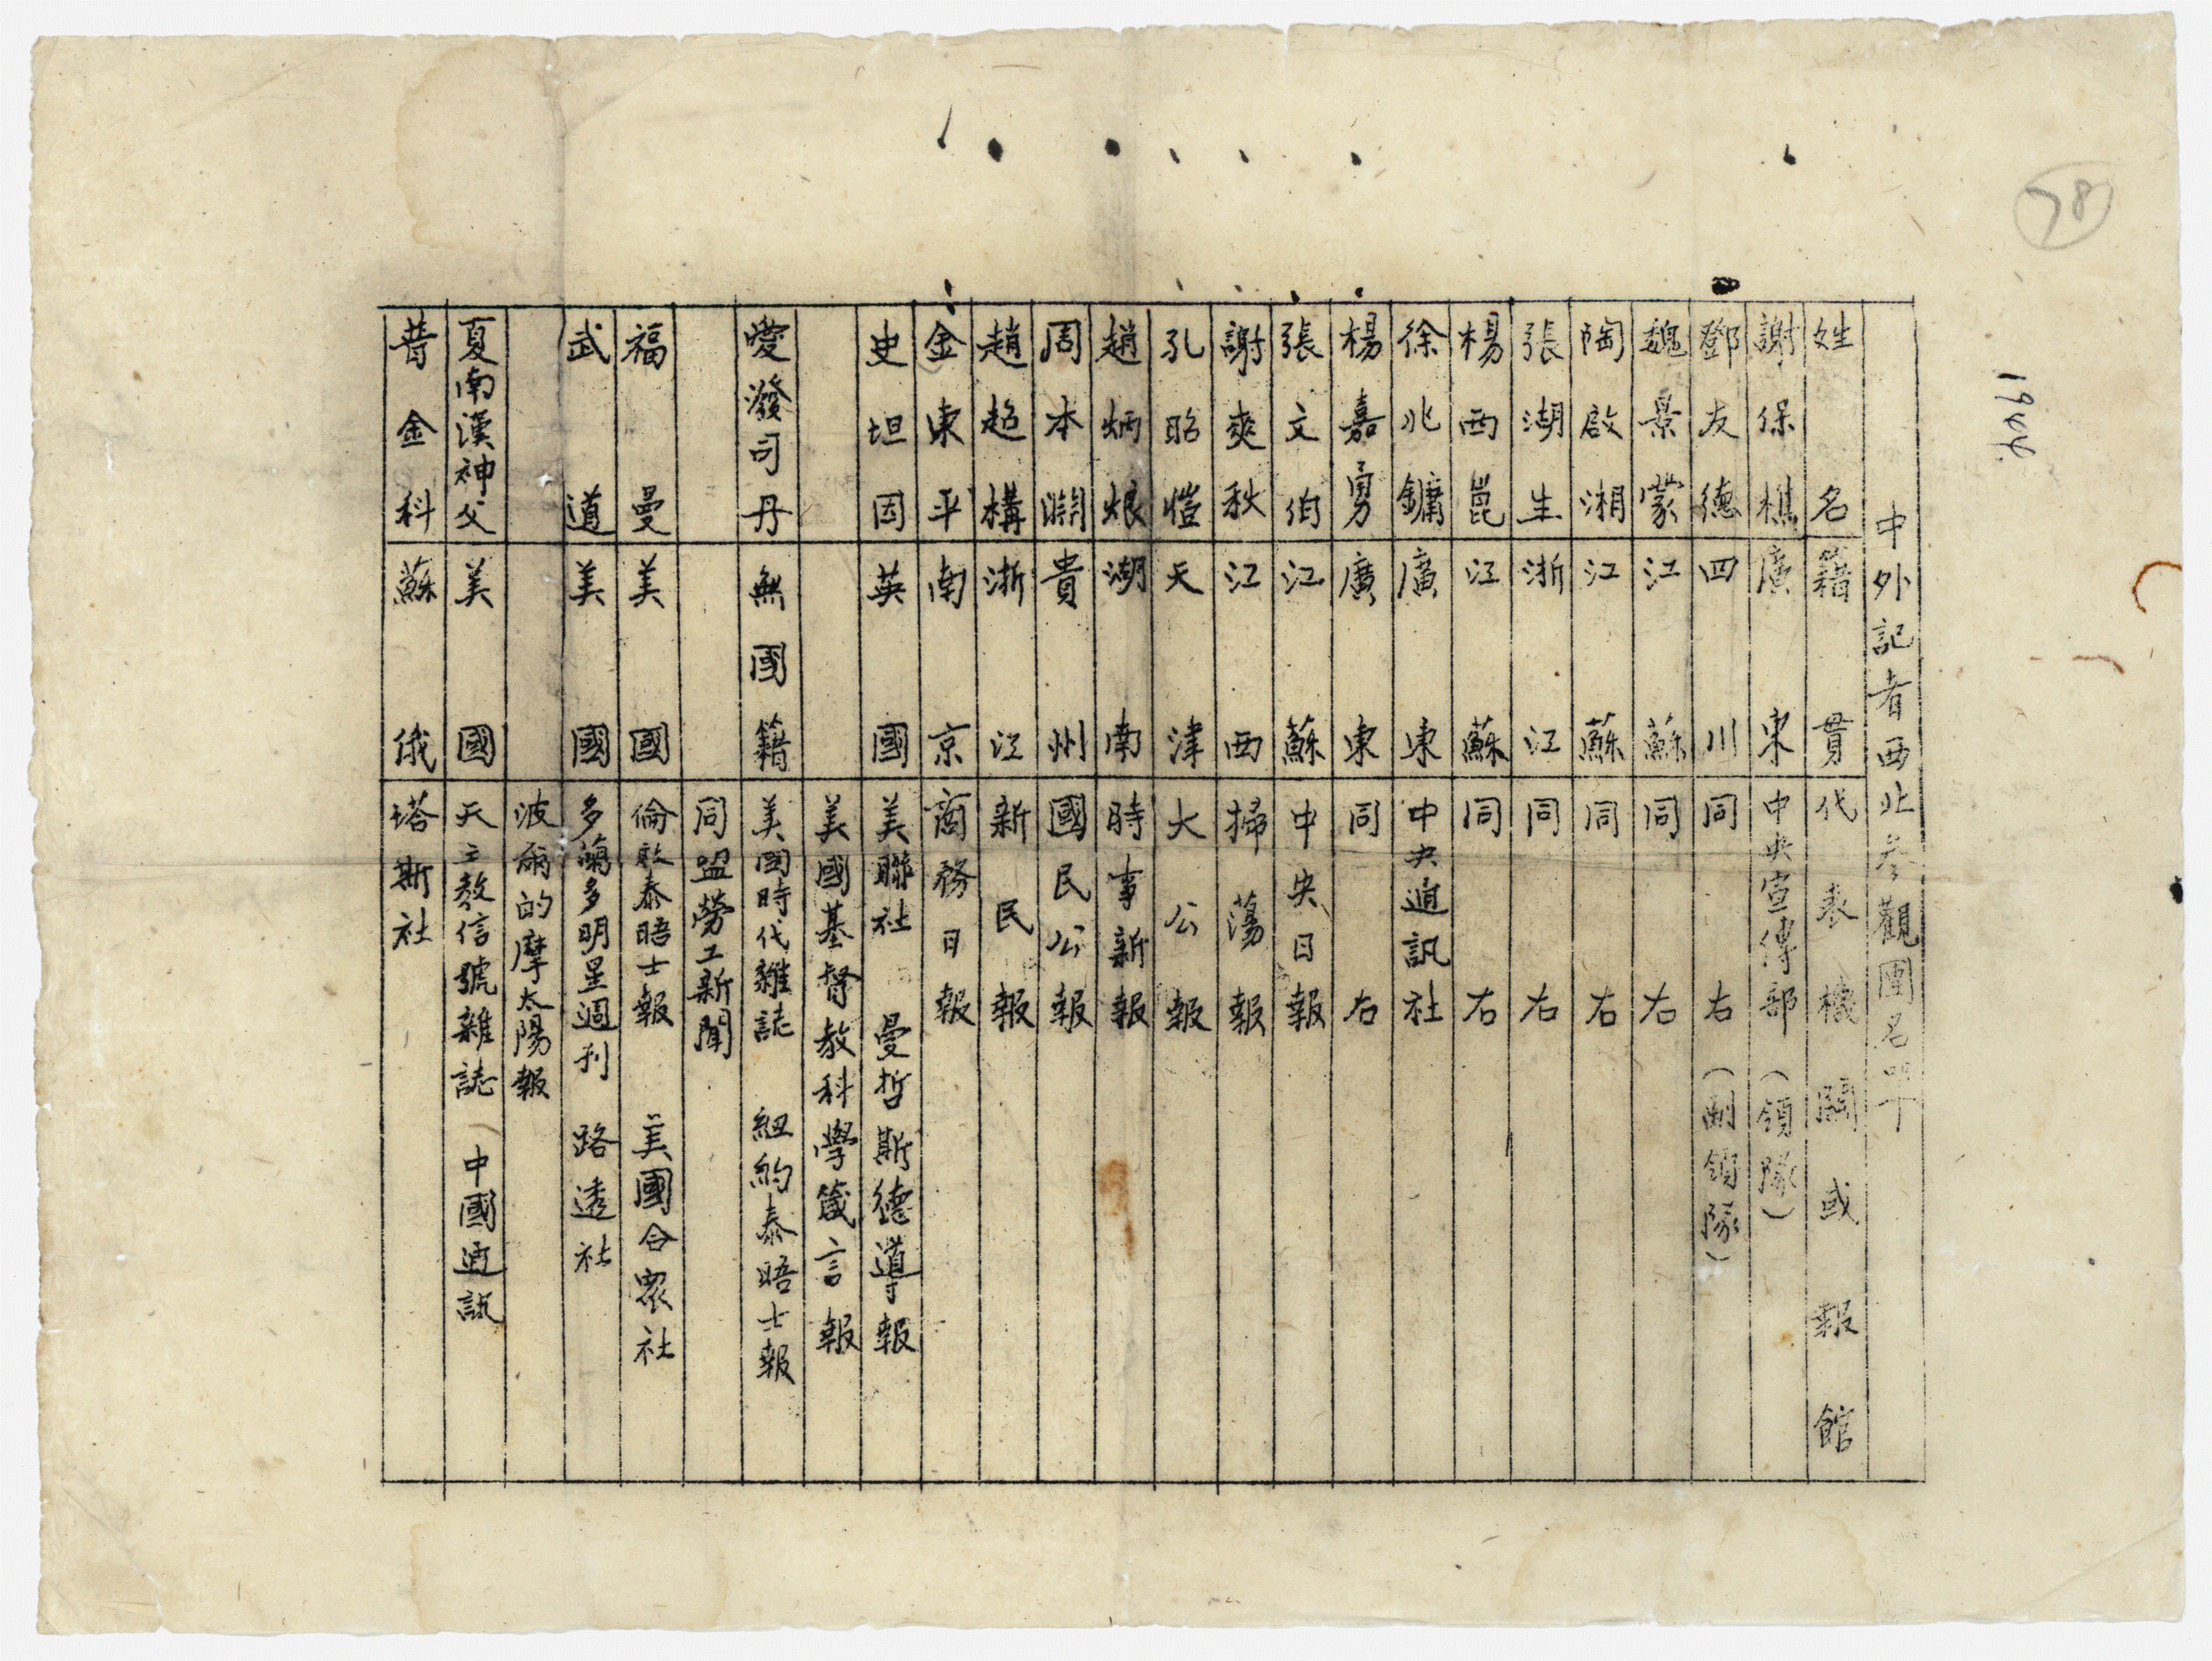 78
1944.
中外記者西北參觀團名單
姓名 籍貫 代表機關或報館
謝保樵 廣東 中央宣傳部（領隊）
鄧友德 四川 同右（副領隊）
魏景蒙 江蘇 同右
陶啟湘 江蘇 同右
張湖生 浙江 同右
楊西崑 江蘇 同右
徐兆鏞 廣東 中央通訊社
楊嘉勇 廣東 同右
張文伯 江蘇 中央日報
謝爽秋 江西 掃蕩報
孔昭愷 天津 大公報
趙炳烺 湖南 時事新報
周本淵 貴州 國民公報
趙超構 浙江 新民報
金東平 南京 商務日報
史坦因 英國 美聯社 曼哲斯德導報
美國基督教科學箴言報
愛潑司丹 無國籍 美國時代雜誌 紐約泰晤士報
同盟勞工新聞
福曼 美國 倫敦泰晤士報 美國合衆社
武道 美國 多蘭多明星週刊 路透社
波爾的摩太陽報
夏南漢神父 美國 天主教信號雜誌 中國通訊
普金科 蘇俄 塔斯社